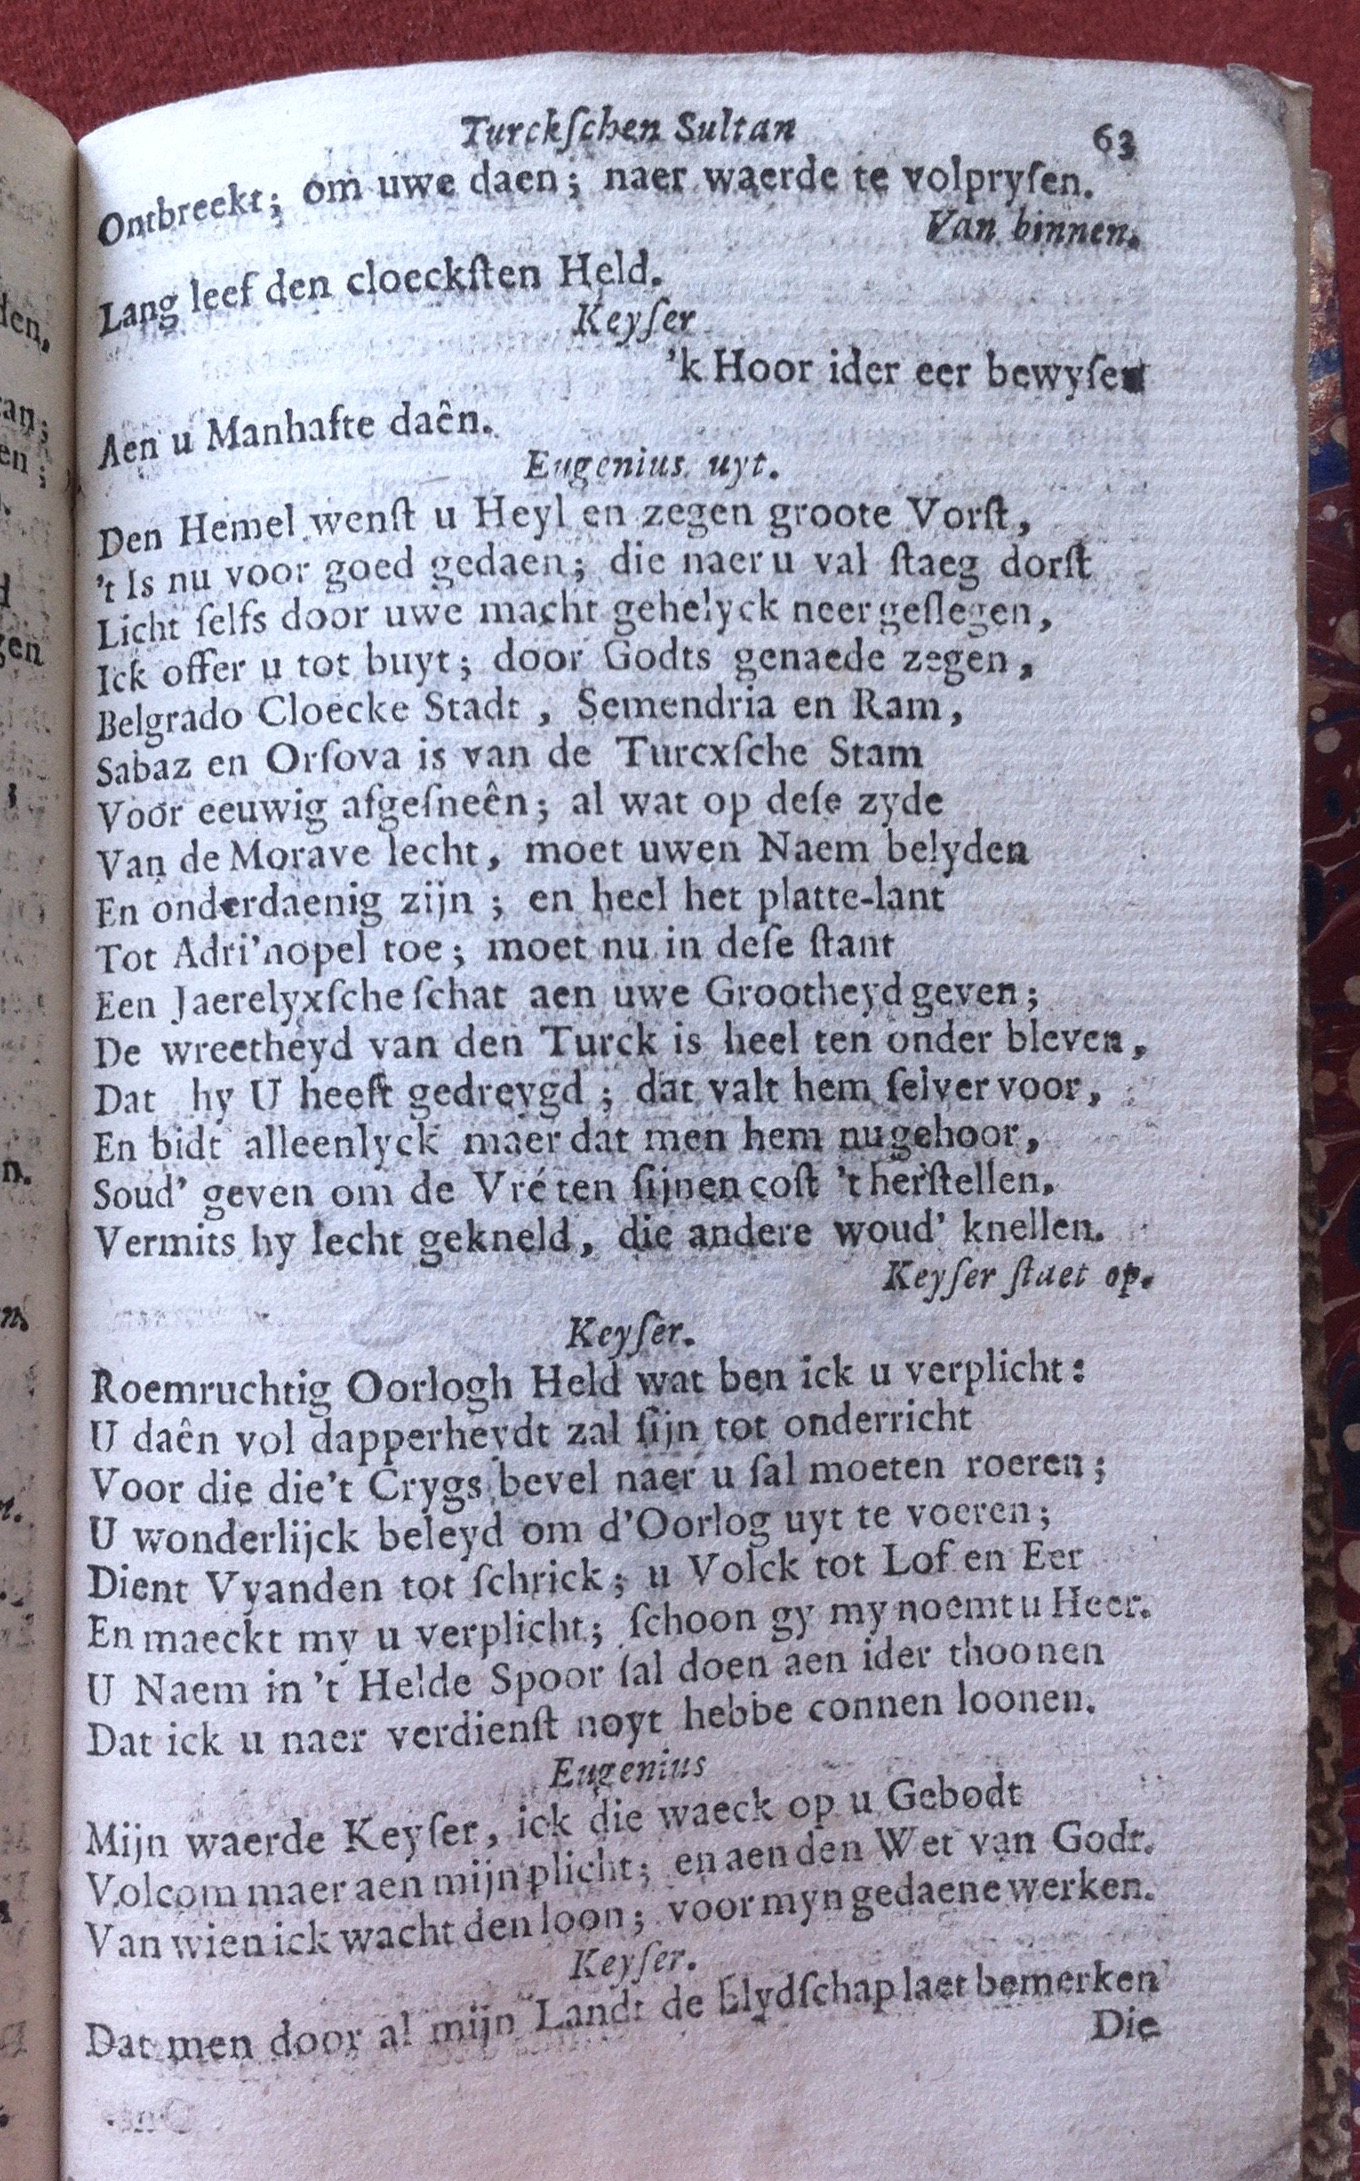 Turckſchen Sultan 63
Ontbreekt; om uwe daen; naer waerde te volpryſen.
Van binnen.
Lang leef den cloeckſten Held.
Keyſer
'k Hoor ider eer bewyſen
Aen u Manhafte daên.
Eugenius uyt.
Den Hemel wenſt u Heyl en zegen groote Vorſt,
't Is nu voor goed gedaen; die naer u val ſtaeg dorſt
Licht ſelfs door uwe macht gehelyck neergeſlegen,
Ick offer u tot buyt; door Godts genaede zegen,
Belgrado Cloecke Stadt, Semendria en Ram,
Sabaz en Orſova is van de Turcxſche Stam
Voor eeuwig afgeſneên; al wat op deſe zyde
Van de Morave lecht, moet uwen Naem belyden
En onderdaenig zijn; en heel het platte-lant
Tot Adri'nopel toe; moet nu in deſe ſtant
Een Jaerelyxſche ſchat aen uwe Grootheyd geven;
De wreetheyd van den Turck is heel ten onder bleven,
Dat hy U heeft gedreygd; dat valt hem ſelver voor,
En bidt alleenlyck maer dat men hem nu gehoor,
Soud' geven om de Vré ten ſijnen coſt 't herſtellen.
Vermits hy lecht gekneld, die andere woud' knellen.
Keyſer ſtaet op.
Keyſer.
Roemruchtig Oorlogh Held wat ben ick u verplicht:
U daên vol dapperheydt zal ſijn tot onderricht
Voor die die't Crygs bevel naer u ſal moeten roeren;
U wonderlijck beleyd om d'Oorlog uyt te voeren;
Dient Vyanden tot ſchrick; u Volck tot Lof en Eer
En maeckt my u verplicht; ſchoon gy my noemt u Heer.
U Naem in 't Helde Spoor ſal doen aen ider thoonen
Dat ick u naer verdienſt noyt hebbe connen loonen.
Eugenius
Mijn waerde Keyſer, ick die waeck op u Gebodt
Volcom maer aen mijn plicht; en aen den Wet van Godt.
Van wien ick wacht den loon; voor myn gedaene werken.
Keyſer.
Dat men door al mijn Landt de Blydſchap laet bemerken
Die